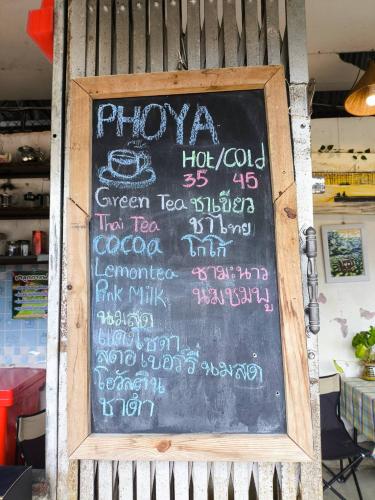 PHOYA
HOt/COld
35 45
Green Tea ชาเขียว
Thai Tea ชาไทย
COCOa โกโก้
Lemontea ชามะนาว
Pink Milk นมชมพู
นมสด
แดงโซดา
สตอเบอร์รี่นมสด
โอวัลติน
ชาดำ